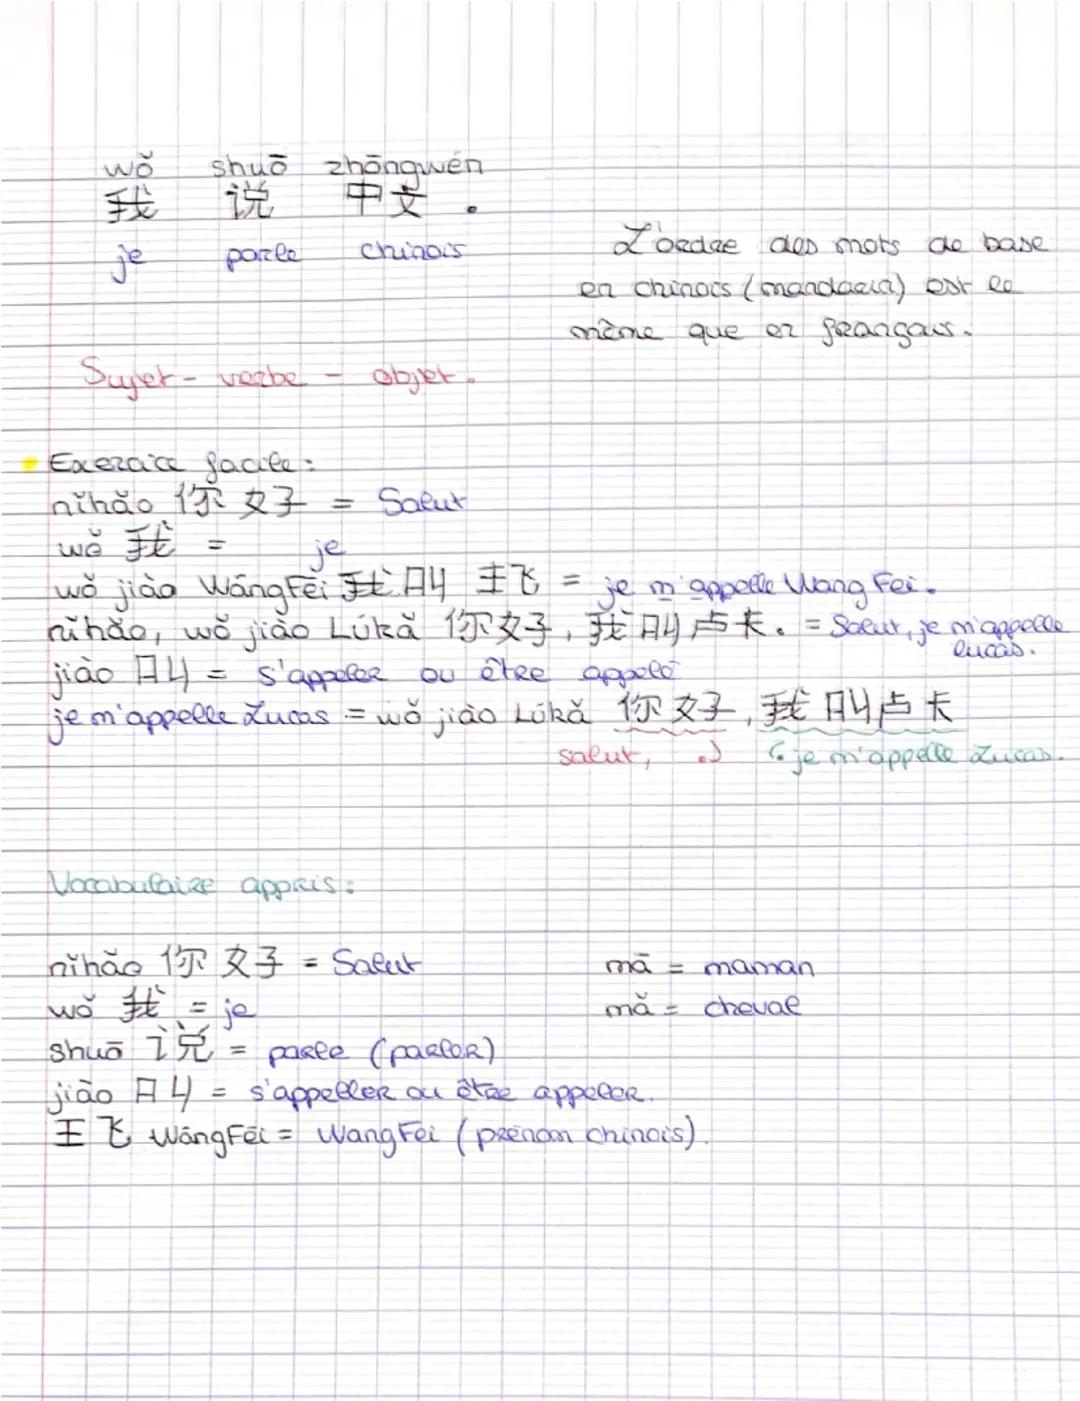 wǒ shuō zhōngwén
我 说 中文 .
je parle chinois
L'ordre des mots de base
en chinois (mandarin) est le
même que en français.
Sujet - verbe - objet.
Exercice facile :
nǐhǎo 你好 = Salut
wǒ 我 = je
wǒ jiào WángFēi 我叫 王飞 = je m'appelle Wang Fei.
nǐhǎo, wǒ jiào Lúkǎ 你好, 我叫卢卡. = Salut, je m'appelle
lucas.
jiào 叫 = s'appeler ou être appelé
je m'appelle Lucas = wǒ jiào Lúkǎ 你好, 我叫卢卡
salut, je m'appelle Lucas.
Vocabulaire appris :
nǐhǎo 你好 = Salut
mā = maman
wǒ 我 = je
mǎ = cheval
shuō 说 = parle (parler)
jiào 叫 = s'appeller ou être appeler.
王飞 WángFēi = WangFei (prénom chinois).